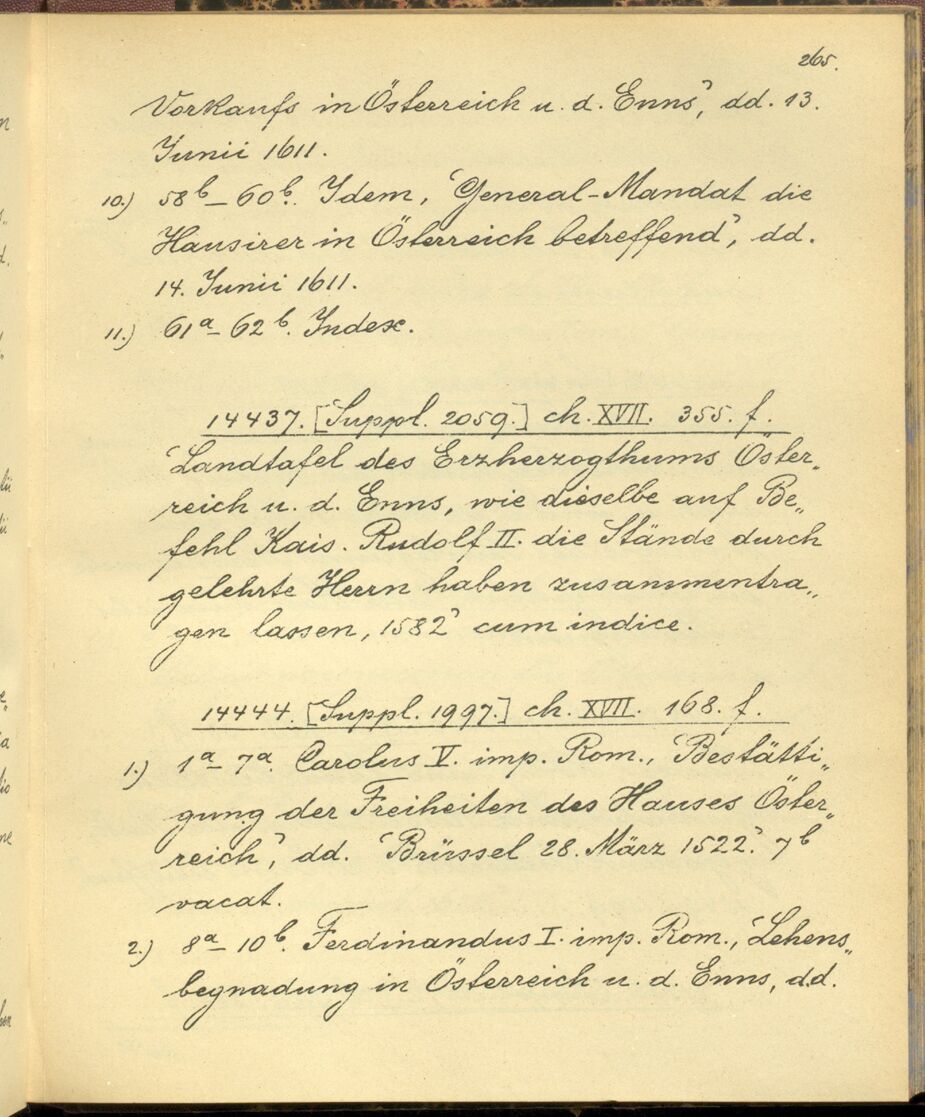 265.
Vorkaufs in Österreich u. d. Enns', dd. 13.
Junii 1611.
10.) 58b – 60b. Idem, 'General-Mandat die
Hausirer in Österreich betreffend', dd.
14. Junii 1611.
11.) 61a – 62b. Index.
14437. [Suppl. 2059.] ch. XVII. 355. f.
'Landtafel des Erzherzogthums Öster„
reich u. d. Enns, wie dieselbe auf Be„
fehl Kais. Rudolf II. die Stände durch
gelehrte Herrn haben zusammentra„
gen lassen, 1582' cum indice.
14444. [Suppl. 1997.] ch. XVII. 168. f.
1.) 1a – 7a. Carolus V. imp. Rom., 'Bestätti„
gung der Freiheiten des Hauses Öster„
reich', dd. 'Brüssel 28. März 1522.' 7b
vacat.
2.) 8a – 10b. Ferdinandus I. imp. Rom., 'Lehens„
begnadung in Österreich u. d. Enns, dd.